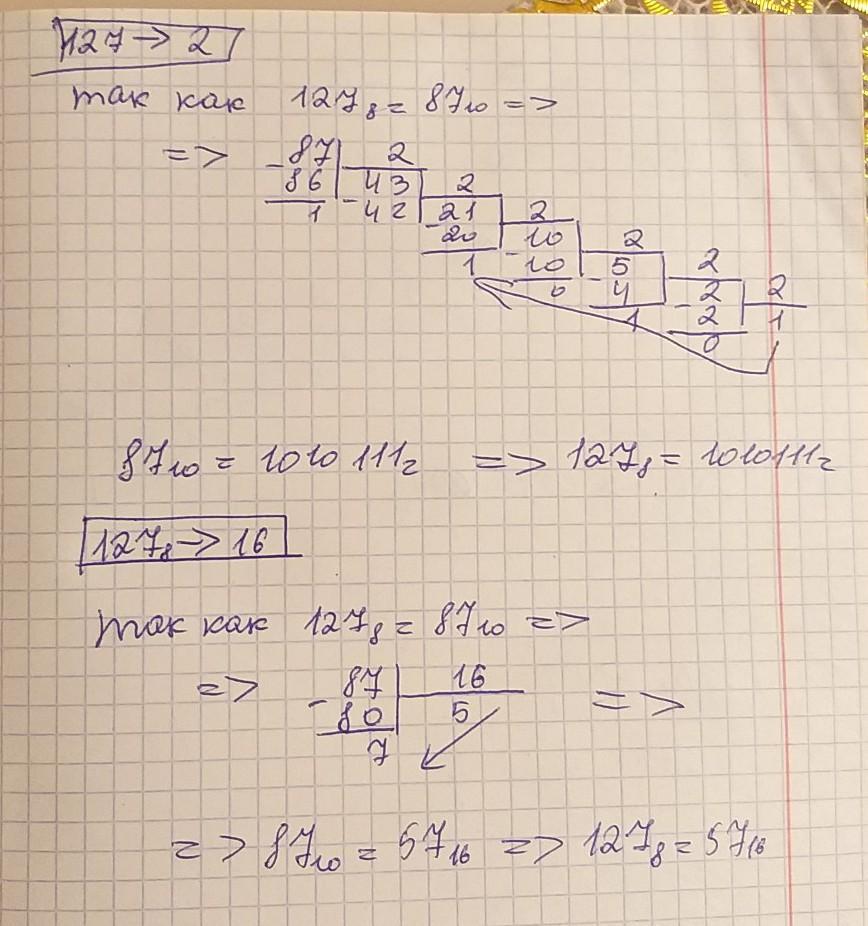 127 → 2
так как 127₈ = 87₁₀ =>
=> -87 | 2
86 | 43 | 2
1 -42 | -21 | 2
20 | 10 | 2
1 -10 | 5 | 2
0 -4 | -2 | 2
1 2 | 1
0
87₁₀ = 1010111₂ => 127₈ = 1010111₂
127₈ → 16
так как 127₈ = 87₁₀ =>
=> -87 | 16 =>
80 | 5
7
=> 87₁₀ = 57₁₆ => 127₈ = 57₁₆